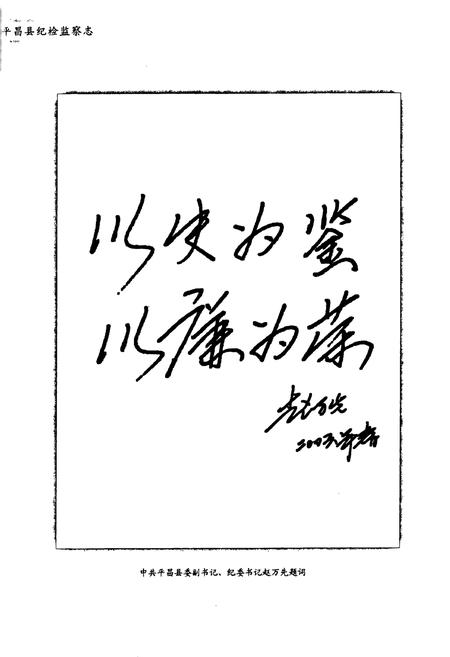 平昌县纪检监察志
以史为鉴
以廉为荣
赵万先
2003年春
中共平昌县委副书记、纪委书记赵万先题词